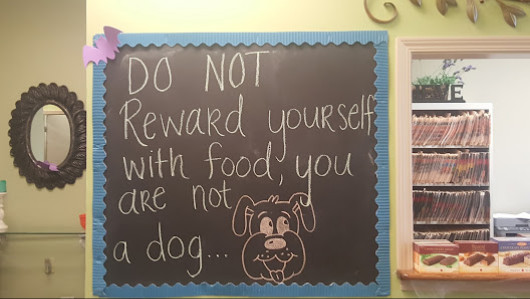 DO NOT
Reward yourself
with food, you
are not
a dog...